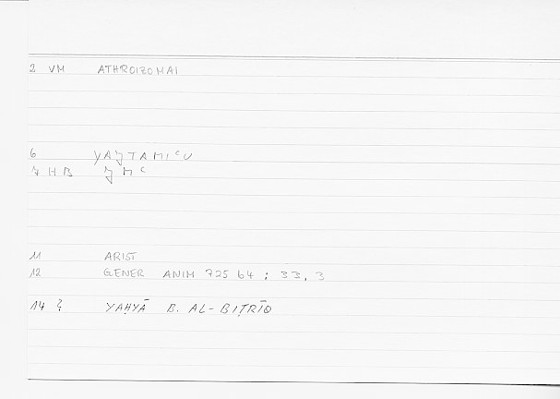 2 VM ATHROIZOMAI
6 YAǦTAMIᶜU
7 H B ǦMᶜ
11 ARIST
12 GENER ANIM 725 b4 ; 33, 3
14 ? YAḤYĀ B. AL-BIṬRĪQ